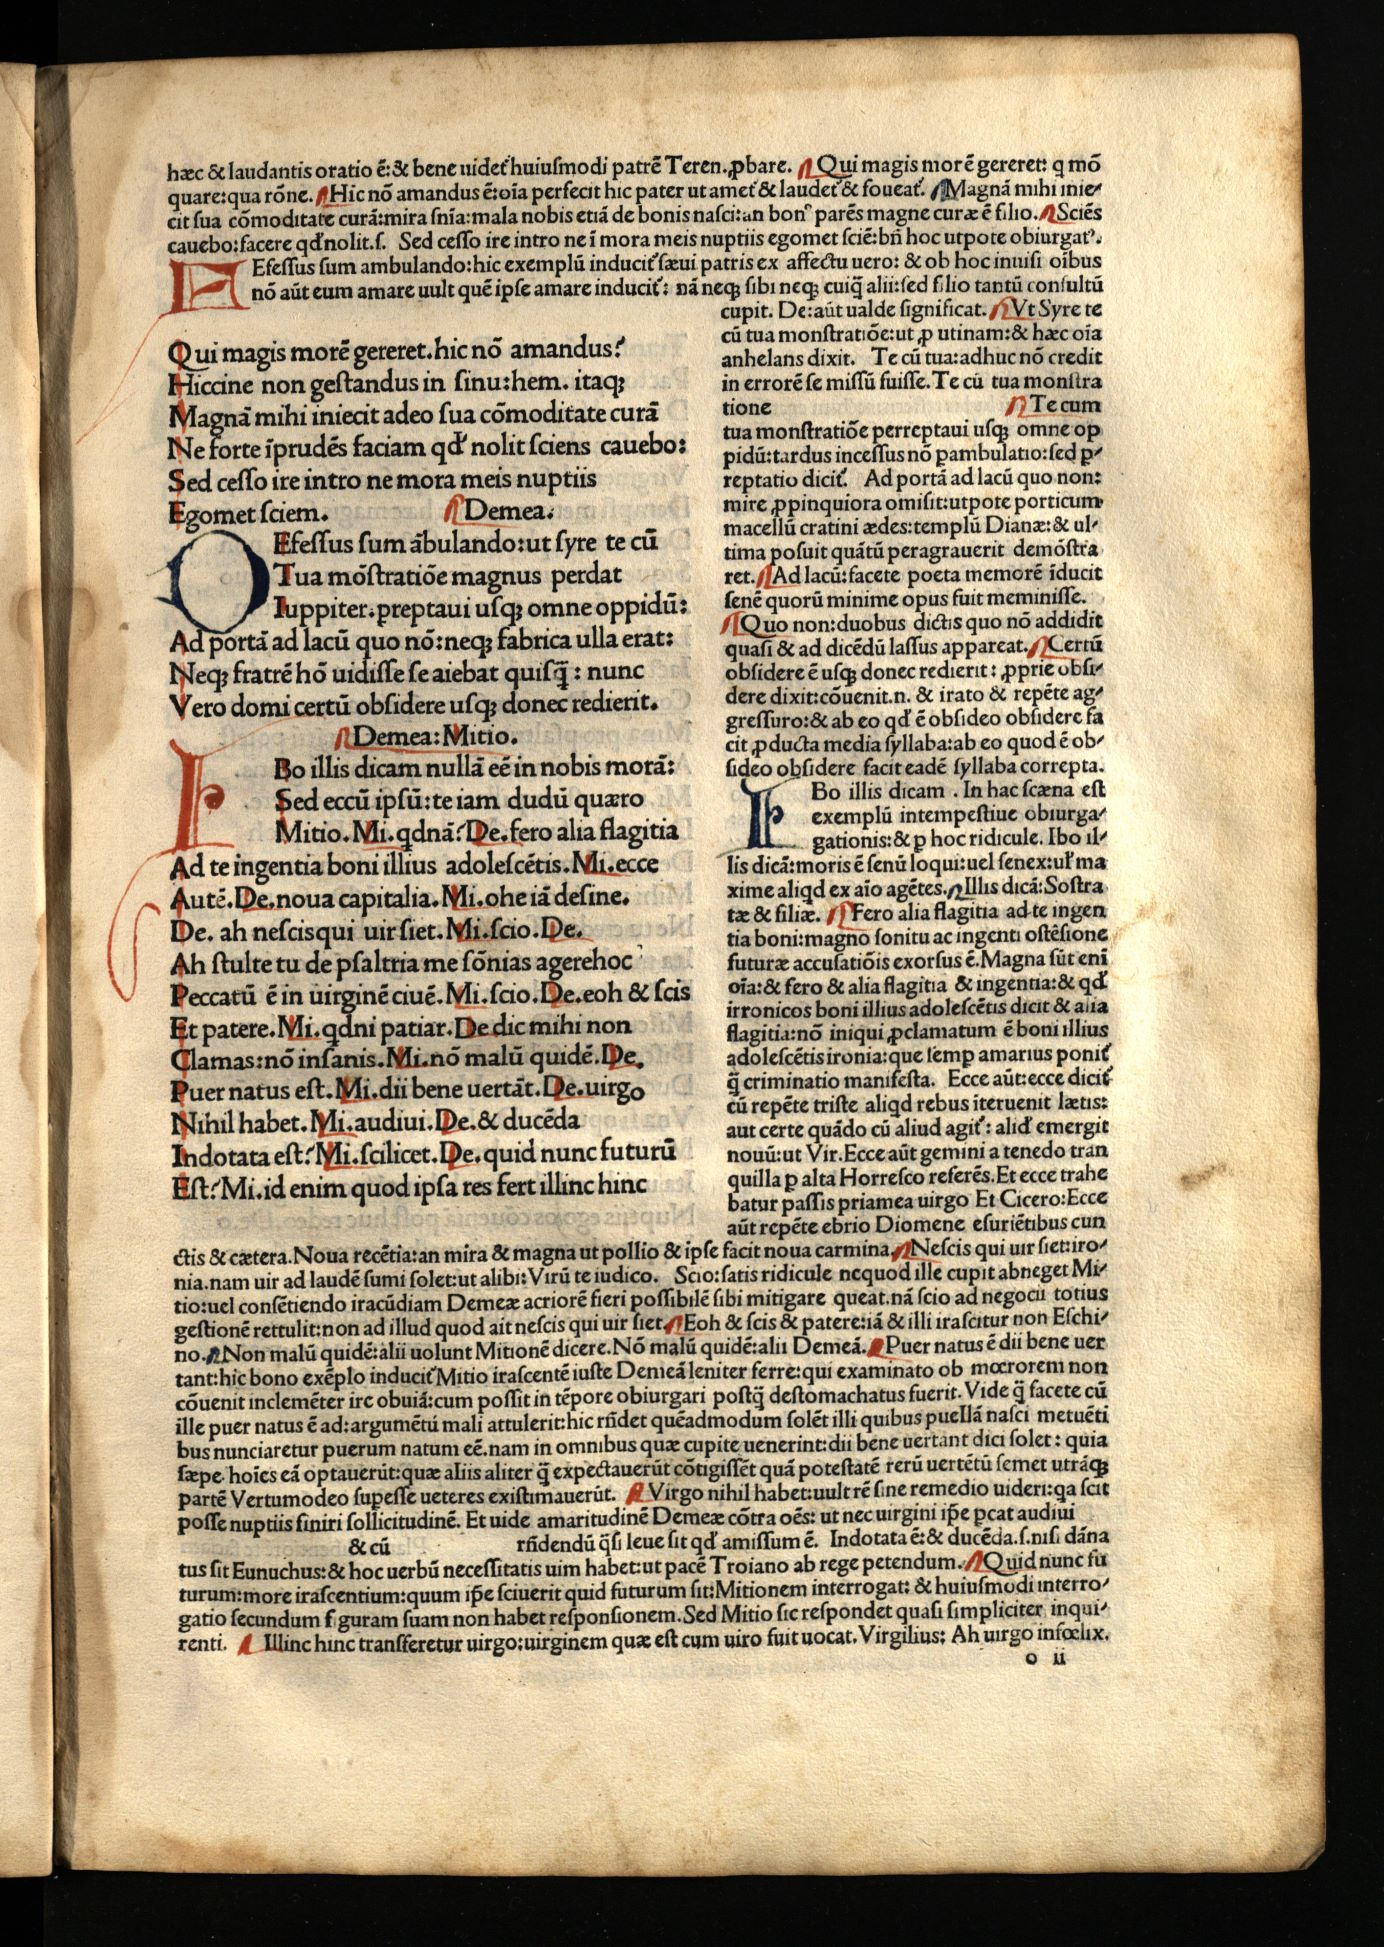 hæc & laudantis oratio ē:& bene uidet᷑ huiuſmodi patrē Teren. ꝓbare. Qui magis morē gereret: q mō
quare:qua rōne. Hic nō amandus ē:oīa perfecit hic pater ut amet᷑ & laudet᷑ & foueat᷑. Magnā mihi inie-
cit ſua cōmoditate curā:mira ſnīa:mala nobis etiā de bonis naſci:an bonꝰ parēs magne curæ ē filio. Sciēs
cauebo:facere qđ nolit.ſ. Sed ceſſo ire intro ne ī mora meis nuptiis egomet ſciē:bñ hoc utpote obiurgatꝰ.
Efeſſus ſum ambulando:hic exemplū inducit᷑ ſæui patris ex affectu uero: & ob hoc inuiſi oībus
nō aūt eum amare uult quē ipſe amare inducit᷑: nā neqꝫ ſibi neqꝫ cuiq̄ alii:ſed filio tantū conſultū
Qui magis morē gereret.hic nō amandus?
Hiccine non geſtandus in ſinu:hem. itaqꝫ
Magnā mihi iniecit adeo ſua cōmoditate curā
Ne forte īprudēs faciam qđ nolit ſciens cauebo:
Sed ceſſo ire intro ne mora meis nuptiis
Egomet ſciem. Demea.
DEfeſſus ſum ābulando:ut ſyre te cū
Tua mōſtratiōe magnus perdat
Iuppiter.ꝑreptaui uſqꝫ omne oppidū:
Ad portā ad lacū quo nō:neqꝫ fabrica ulla erat:
Neqꝫ fratrē hō uidiſſe ſe aiebat quiſq̄ : nunc
Vero domi certū obſidere uſqꝫ donec redierit.
Demea: Mitio.
IBo illis dicam nullā eē in nobis morā:
Sed eccū ipſū:te iam dudū quæro
Mitio. Mi. qdnā? De. fero alia flagitia
Ad te ingentia boni illius adoleſcētis. Mi. ecce
Autē. De. noua capitalia. Mi. ohe iā deſine.
De. ah neſcis qui uir ſiet. Mi. ſcio. De.
Ah ſtulte tu de pſaltria me ſōnias agere hoc
Peccatū ē in uirginē ciuē. Mi. ſcio. De. eoh & ſcis
Et patere. Mi. qdni patiar. De dic mihi non
Clamas:nō inſanis. Mi. nō malū quidē. De.
Puer natus eſt. Mi. dii bene uertāt. De. uirgo
Nihil habet. Mi. audiui. De. & ducēda
Indotata eſt? Mi. ſcilicet. De. quid nunc futurū
Eſt? Mi. id enim quod ipſa res fert illinc hinc
cupit. De: aūt ualde ſignificat. Vt Syre te
cū tua monſtratiōe:ut ꝓ utinam:& hæc oīa
anhelans dixit. Te cū tua:adhuc nō credit
in errorē ſe miſſū fuiſſe. Te cū tua monſtra
tione Te cum
tua monſtratiōe perreptaui uſqꝫ omne op
pidū:tardus inceſſus nō ꝑambulatio:ſed ꝑ-
reptatio dicit᷑. Ad portā ad lacū quo non:
mire ꝓpinquiora omiſit:utpote porticum
macellū cratini ædes:templū Dianæ:& ul-
tima poſuit quātū peragrauerit demōſtra
ret. Ad lacū:facete poeta memorē īducit
ſenē quorū minime opus fuit meminiſſe.
Quo non:duobus dictis quo nō addidit
quaſi & ad dicēdū laſſus appareat. Certū
obſidere ē uſqꝫ donec redierit : ꝓprie obſi-
dere dixit:cōuenit.n. & irato & repēte ag-
greſſuro:& ab eo qđ ē obſideo obſidere fa
cit ꝓducta media ſyllaba:ab eo quod ē ob-
ſideo obſidere facit eadē ſyllaba correpta.
IBo illis dicam . In hac ſcæna eſt
exemplū intempeſtiue obiurga-
gationis:& ꝑ hoc ridicule. Ibo il-
lis dicā:moris ē ſenū loqui:uel ſenex:uꝉ ma
xime aliqd ex aīo agētes. Illis dicā: Soſtra
tæ & filiæ. Fero alia flagitia ad te ingen
tia boni:magno ſonitu ac ingenti oſtēſione
futuræ accuſatiōis exorſus ē. Magna ſūt enī
oīa:& fero & alia flagitia & ingentia:& qđ
irronicos boni illius adoleſcētis dicit & alia
flagitia:nō iniqui ꝓclamatum ē boni illius
adoleſcētis ironia:que ſemꝑ amarius ponit᷑
q̄ criminatio manifeſta. Ecce aūt:ecce dicit᷑
cū repēte triſte aliqd rebus īteruenit lætis:
aut certe quādo cū aliud agit᷑: aliđ emergit
nouū:ut Vir. Ecce aūt gemini a tenedo tran
quilla ꝑ alta Horreſco referēs. Et ecce trahe
batur paſſis priamea uirgo Et Cicero: Ecce
aūt repēte ebrio Diomene eſuriētibus cun
ctis & cætera. Noua recētia:an mira & magna ut pollio & ipſe facit noua carmina. Neſcis qui uir ſiet:iro-
nia.nam uir ad laudē ſumi ſolet:ut alibi: Virū te iudico. Scio:ſatis ridicule nequod ille cupit abneget Mi-
tio:uel conſētiendo iracūdiam Demeæ acriorē fieri poſſibilē ſibi mitigare queat.nā ſcio ad negocii totius
geſtionē rettulit:non ad illud quod ait neſcis qui uir ſiet. Eoh & ſcis & patere:iā & illi iraſcitur non Eſchi-
no. Non malū quidē:alii uolunt Mitionē dicere. Nō malū quidē:alii Demeā. Puer natus ē dii bene uer
tant:hic bono exēplo inducit᷑ Mitio iraſcentē iuſte Demeā leniter ferre:qui examinato ob mœrorem non
cōuenit inclemēter ire obuiā:cum poſſit in tēpore obiurgari poſtq̄ deſtomachatus fuerit. Vide q̄ facete cū
ille puer natus ē ad:argumētū mali attulerit:hic rñdet quēadmodum ſolēt illi quibus puellā naſci metuēti
bus nunciaretur puerum natum eē.nam in omnibus quæ cupite uenerint:dii bene uertant dici ſolet : quia
ſæpe hoīes eā optauerūt:quæ aliis aliter q̄ expectauerūt cōtigiſſēt quā poteſtatē rerū uertētū ſemet utrāqꝫ
partē Vertumodeo ſupeſſe ueteres exiſtimauerūt. Virgo nihil habet:uult rē ſine remedio uideri:qa ſcit
poſſe nuptiis finiri ſollicitudinē. Et uide amaritudinē Demeæ cōtra oēs: ut nec uirgini ip̄e ꝑcat audiui
& cū rñdendū q̄ſi leue ſit qđ amiſſum ē. Indotata ē:& ducēda.ſ.niſi dāna
tus ſit Eunuchus:& hoc uerbū neceſſitatis uim habet:ut pacē Troiano ab rege petendum. Quid nunc fu
turum:more iraſcentium:quum ip̄e ſciuerit quid futurum ſit: Mitionem interrogat: & huiuſmodi interro-
gatio ſecundum figuram ſuam non habet reſponſionem. Sed Mitio ſic reſpondet quaſi ſimpliciter inqui-
renti. Illinc hinc transferetur uirgo:uirginem quæ eſt cum uiro fuit uocat. Virgilius: Ah uirgo infœlix.
o ii